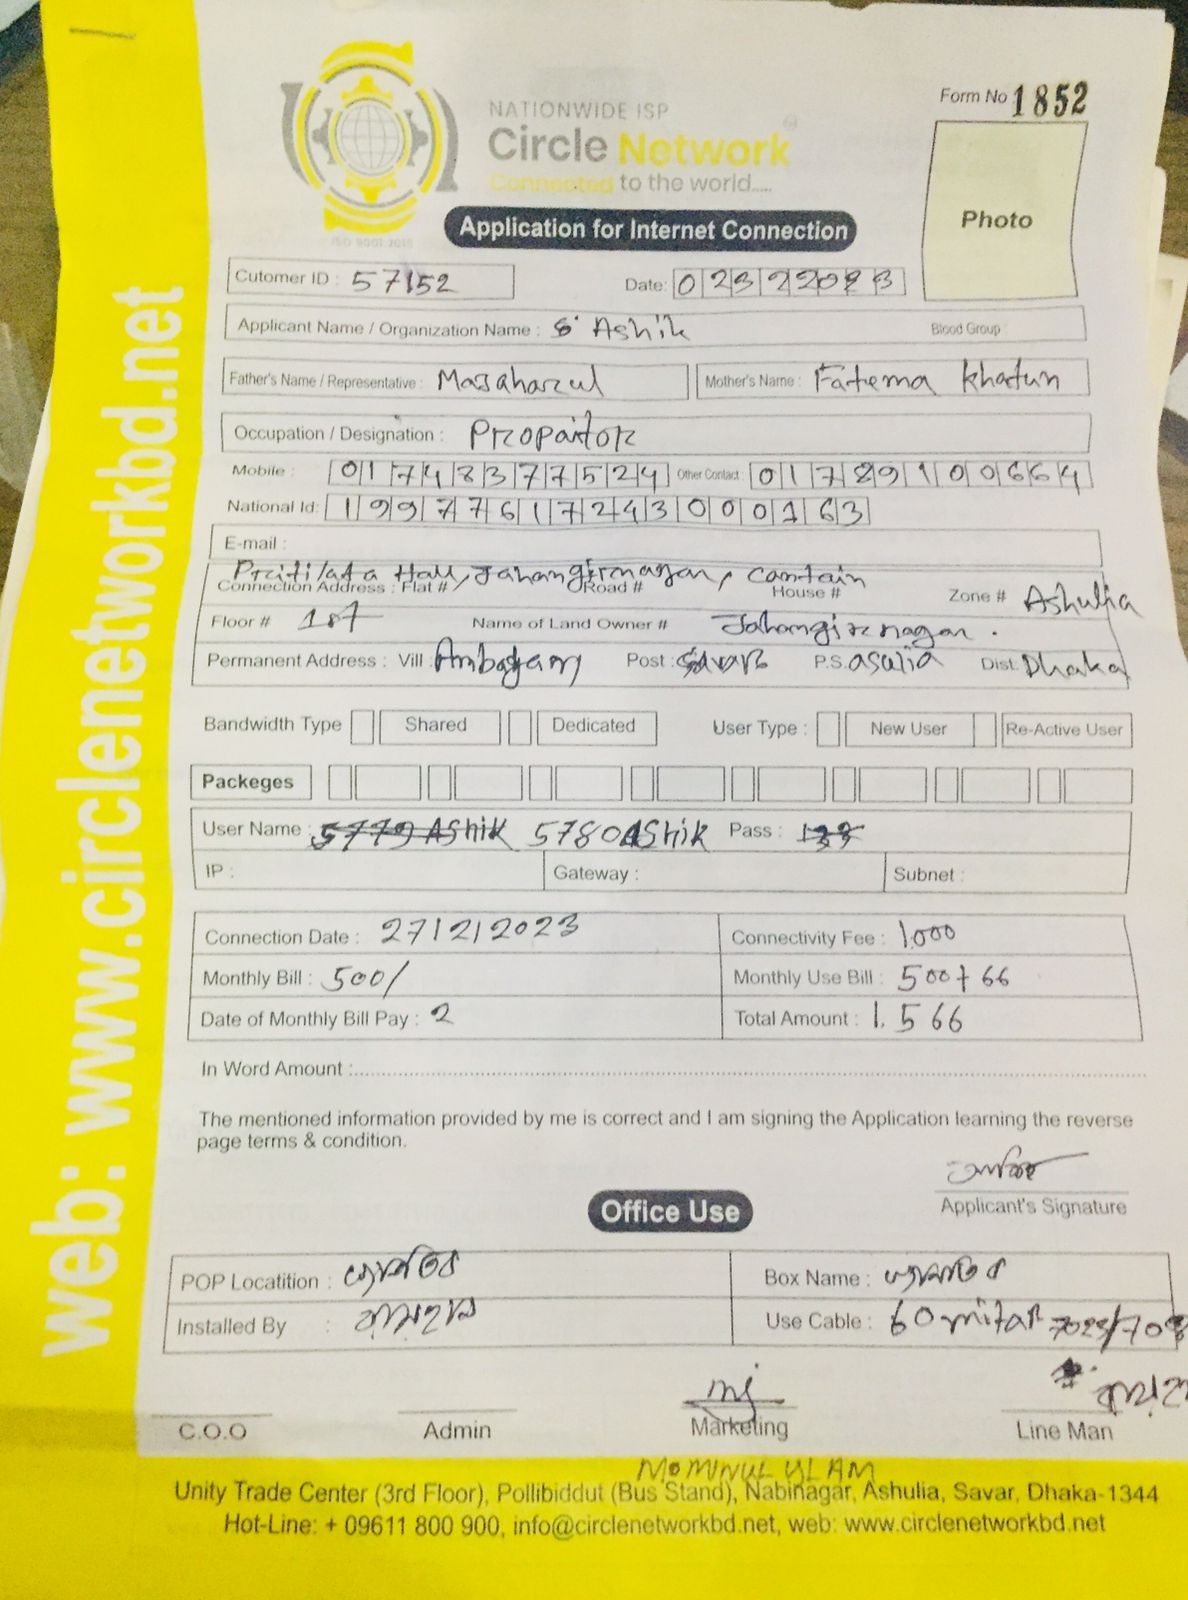 NATIONWIDE ISP
Circle Network
Connected to the world.....
ISO 9001:2015
Form No 1852
Photo
Application for Internet Connection
Cutomer ID : 57152 Date:
Applicant Name / Organization Name : Ashik Blood Group
Father's Name / Representative : Mother's Name : Fatema Khatun
Occupation / Designation : Propaitor
Mobile : 01748377524 Other Contact 01789100664
National Id: 19977617243000163
E-mail :
Pritilata Hall, Jahangirnagar, Contain
Connection Address : Flat # Road # House # Zone # Ashulia
Floor # 1st Name of Land Owner # Jahangirnagar.
Permanent Address : Vill : Post : Savar P.S. asulia Dist. Dhaka
Bandwidth Type Shared Dedicated User Type : New User Re-Active User
Packeges
User Name : 5779 Ashik 5780 Ashik Pass :
IP : Gateway : Subnet :
Connection Date : 27/2/2023 Connectivity Fee : 1,000
Monthly Bill : 500/ Monthly Use Bill : 500+66
Date of Monthly Bill Pay : 2 Total Amount : 1.566
In Word Amount :
The mentioned information provided by me is correct and I am signing the Application learning the reverse
page terms & condition.
Applicant's Signature
Office Use
POP Locatition : Box Name :
Installed By : Use Cable : 60 mitar
C.O.O Admin Marketing Line Man
MOMINUL
Unity Trade Center (3rd Floor), Pollibiddut (Bus Stand), Nabinagar, Ashulia, Savar, Dhaka-1344
Hot-Line: + 09611 800 900, info@circlenetworkbd.net, web: www.circlenetworkbd.net
web: www.circlenetworkbd.net